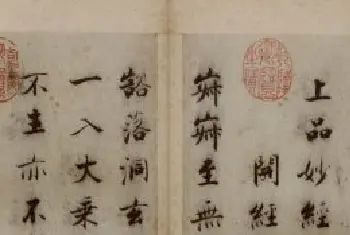 上品妙經
開經
寂寂至無
豁落洞玄
一入大乘
不生亦不